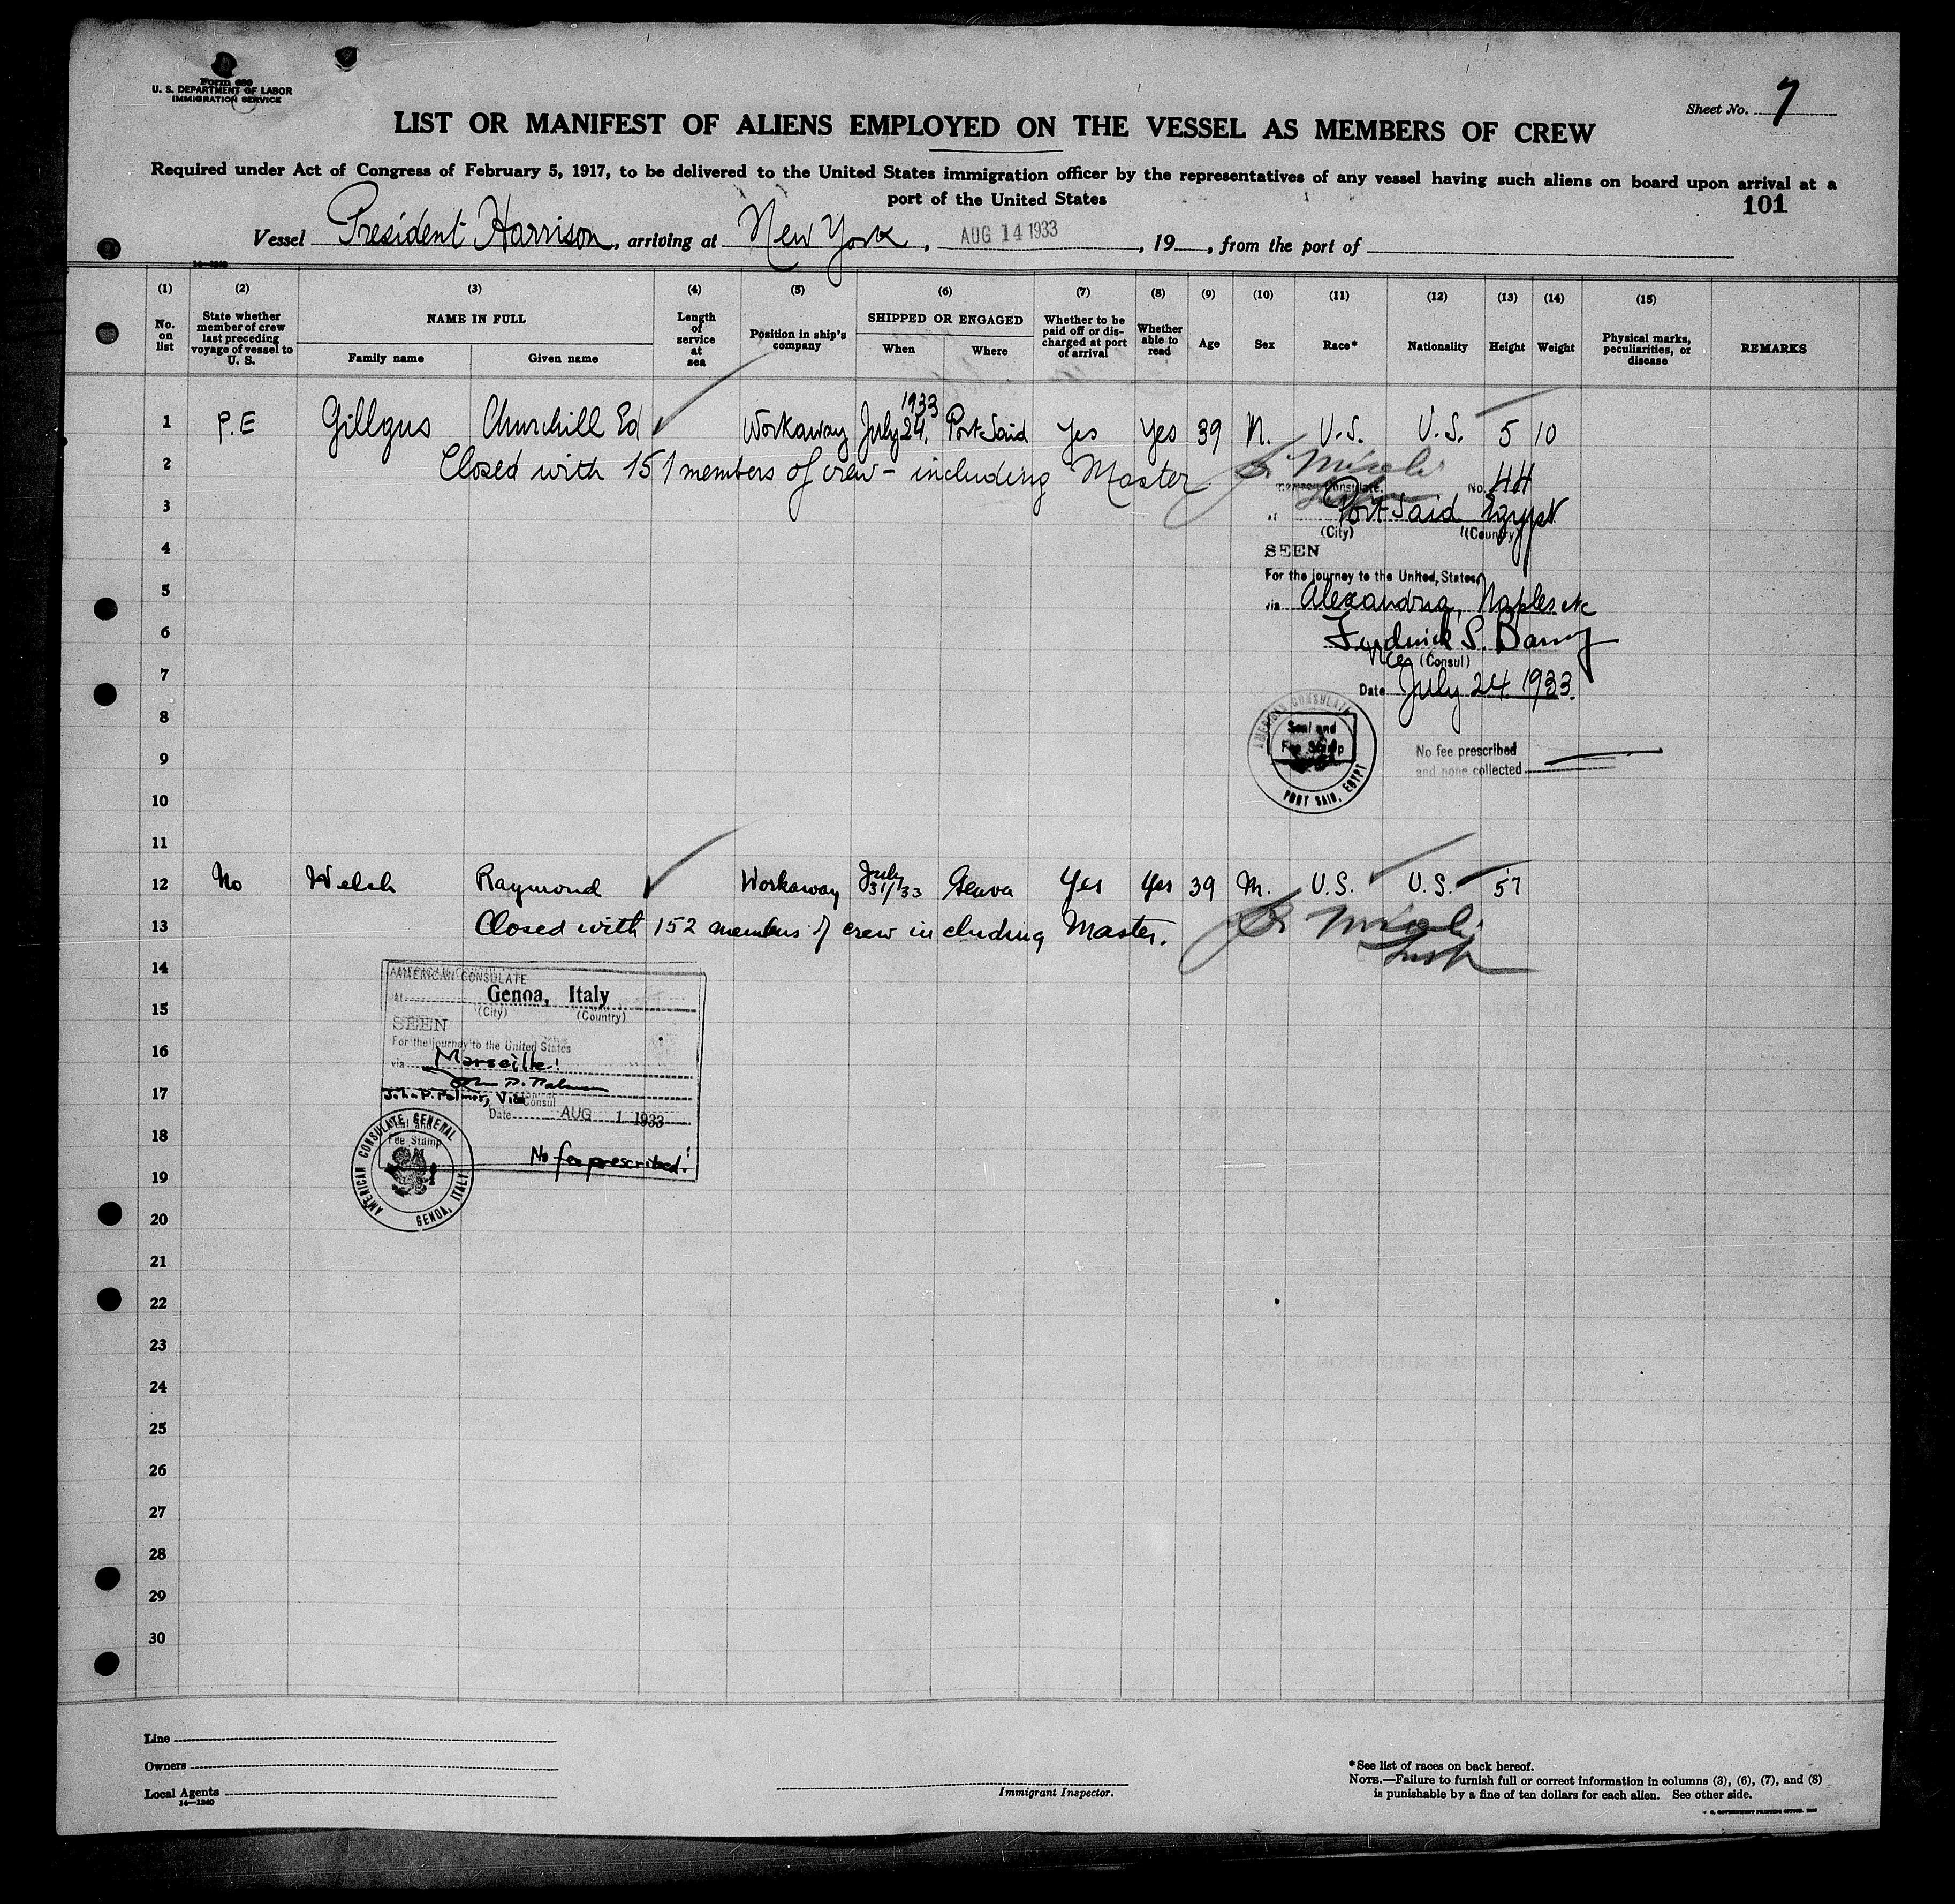 Form 689
U. S. DEPARTMENT OF LABOR
IMMIGRATION SERVICE
Sheet No. 7
LIST OR MANIFEST OF ALIENS EMPLOYED ON THE VESSEL AS MEMBERS OF CREW
Required under Act of Congress of February 5, 1917, to be delivered to the United States immigration officer by the representatives of any vessel having such aliens on board upon arrival at a
port of the United States
101
Vessel President Harrison, arriving at New York, AUG 14 1933, 19, from the port of
14—1240
(1) (2) (3) (4) (5) (6) (7) (8) (9) (10) (11) (12) (13) (14) (15)
No. on list
State whether member of crew last preceding voyage of vessel to U. S.
NAME IN FULL
Family name Given name
Length of service at sea
Position in ship's company
SHIPPED OR ENGAGED
When Where
Whether to be paid off or discharged at port of arrival
Whether able to read
Age
Sex
Race*
Nationality
Height
Weight
Physical marks, peculiarities, or disease
REMARKS
1 P.E Gillgus Churchill Ed Workaway July 24, 1933 Port Said Yes Yes 39 M. U.S. U.S. 5 10
2 Closed with 151 members of crew - including Master
No. 44
3 Port Said Egypt
(City) (Country)
4 SEEN
For the journey to the United States
5 via Alexandria, Naples etc
6 Frederick S. Barny
Vice (Consul)
7 Date July 24. 1933.
8 AMERICAN CONSULATE
Seal and
Fee Stamp
PORT SAID, EGYPT
No fee prescribed
9 and none collected
10
11
12 No Welch Raymond Workaway July 31/33 Genoa Yes Yes 39 M. U.S. U.S. 57
13 Closed with 152 members of crew including Master.
14 AMERICAN CONSULATE
At Genoa, Italy
15 (City) (Country)
SEEN
For the journey to the United States
16 via Marseille
17 John P. Palmer, Vice Consul
Date AUG 1 1933
18 AMERICAN CONSULATE GENERAL
Seal and
Fee Stamp
GENOA, ITALY
No fee prescribed
19
20
21
22
23
24
25
26
27
28
29
30
Line
Owners
Local Agents
14—1240
Immigrant Inspector.
*See list of races on back hereof.
NOTE.—Failure to furnish full or correct information in columns (3), (6), (7), and (8)
is punishable by a fine of ten dollars for each alien. See other side.